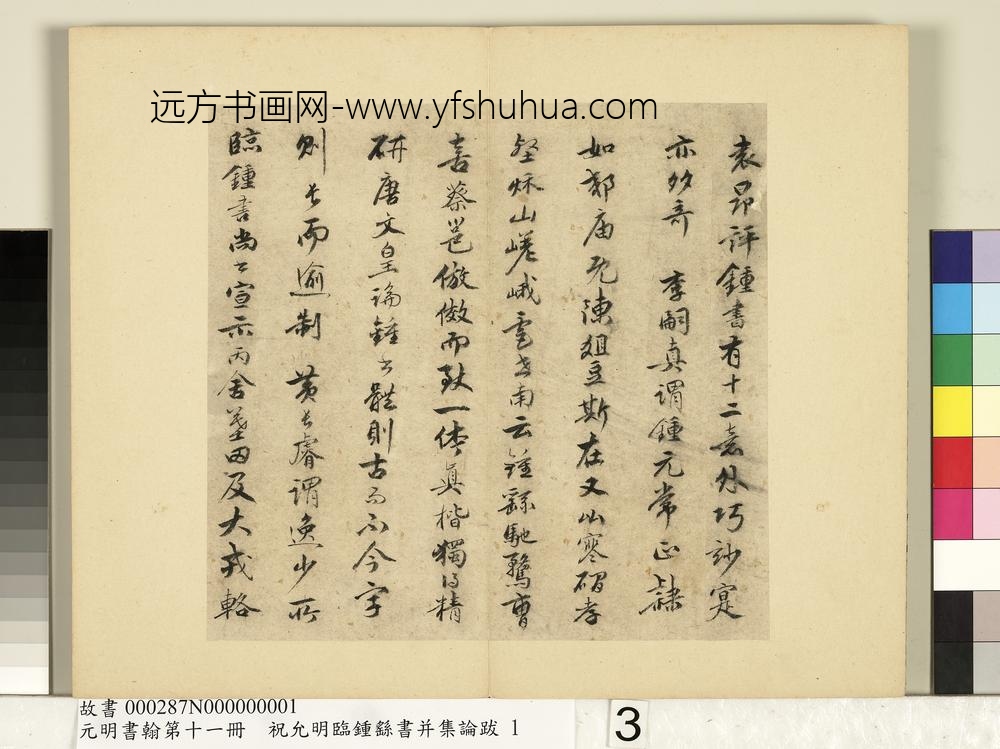 远方书画网-www.yfshuhua.com
袁昂評鍾書有十二意外巧妙寔
亦多奇 李嗣真謂鍾元常正隸
如郊廟既陳俎豆斯在又比寒磵
壑秋山嵯峨 虞世南云鍾繇馳騖曹
喜蔡邕倣傚而致一体真楷獨得精
研 唐文皇論鍾書體則古而不今字
則長而逾制 黃長睿謂逸少所
臨鍾書尚書宣示丙舍墓田及大戎輅
故書 000287N000000001
元明書翰第十一冊 祝允明臨鍾繇書并集論跋 1
3